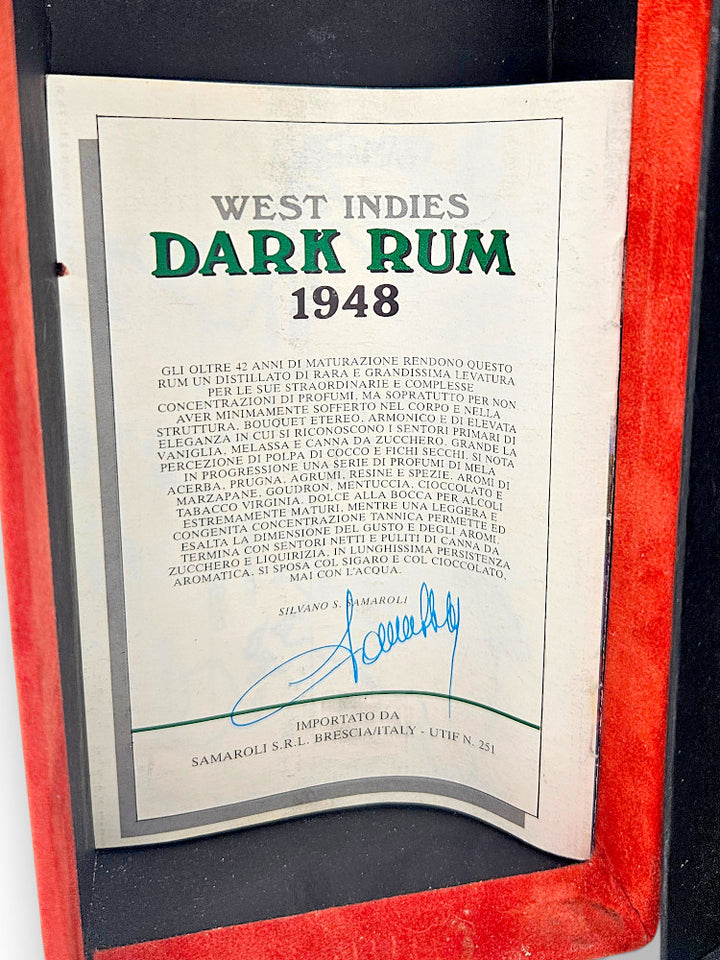 WEST INDIES
DARK RUM
1948
GLI OLTRE 42 ANNI DI MATURAZIONE RENDONO QUESTO
RUM UN DISTILLATO DI RARA E GRANDISSIMA LEVATURA
PER LE SUE STRAORDINARIE E COMPLESSE
CONCENTRAZIONI DI PROFUMI, MA SOPRATUTTO PER NON
AVER MINIMAMENTE SOFFERTO NEL CORPO E NELLA
STRUTTURA, BOUQUET ETEREO, ARMONICO E DI ELEVATA
ELEGANZA IN CUI SI RICONOSCONO I SENTORI PRIMARI DI
VANIGLIA, MELASSA E CANNA DA ZUCCHERO. GRANDE LA
PERCEZIONE DI POLPA DI COCCO E FICHI SECCHI. SI NOTA
IN PROGRESSIONE UNA SERIE DI PROFUMI DI MELA
ACERBA, PRUGNA, AGRUMI, RESINE E SPEZIE. AROMI DI
MARZAPANE, GOUDRON, MENTUCCIA, CIOCCOLATO E
TABACCO VIRGINIA. DOLCE ALLA BOCCA PER ALCOLI
ESTREMAMENTE MATURI, MENTRE UNA LEGGERA E
CONGENITA CONCENTRAZIONE TANNICA PERMETTE ED
ESALTA LA DIMENSIONE DEL GUSTO E DEGLI AROMI.
TERMINA CON SENTORI NETTI E PULITI DI CANNA DA
ZUCCHERO E LIQUIRIZIA, IN LUNGHISSIMA PERSISTENZA
AROMATICA, SI SPOSA COL SIGARO E COL CIOCCOLATO,
MAI CON L'ACQUA.
SILVANO S. SAMAROLI
Samaroli
IMPORTATO DA
SAMAROLI S.R.L. BRESCIA/ITALY - UTIF N. 251